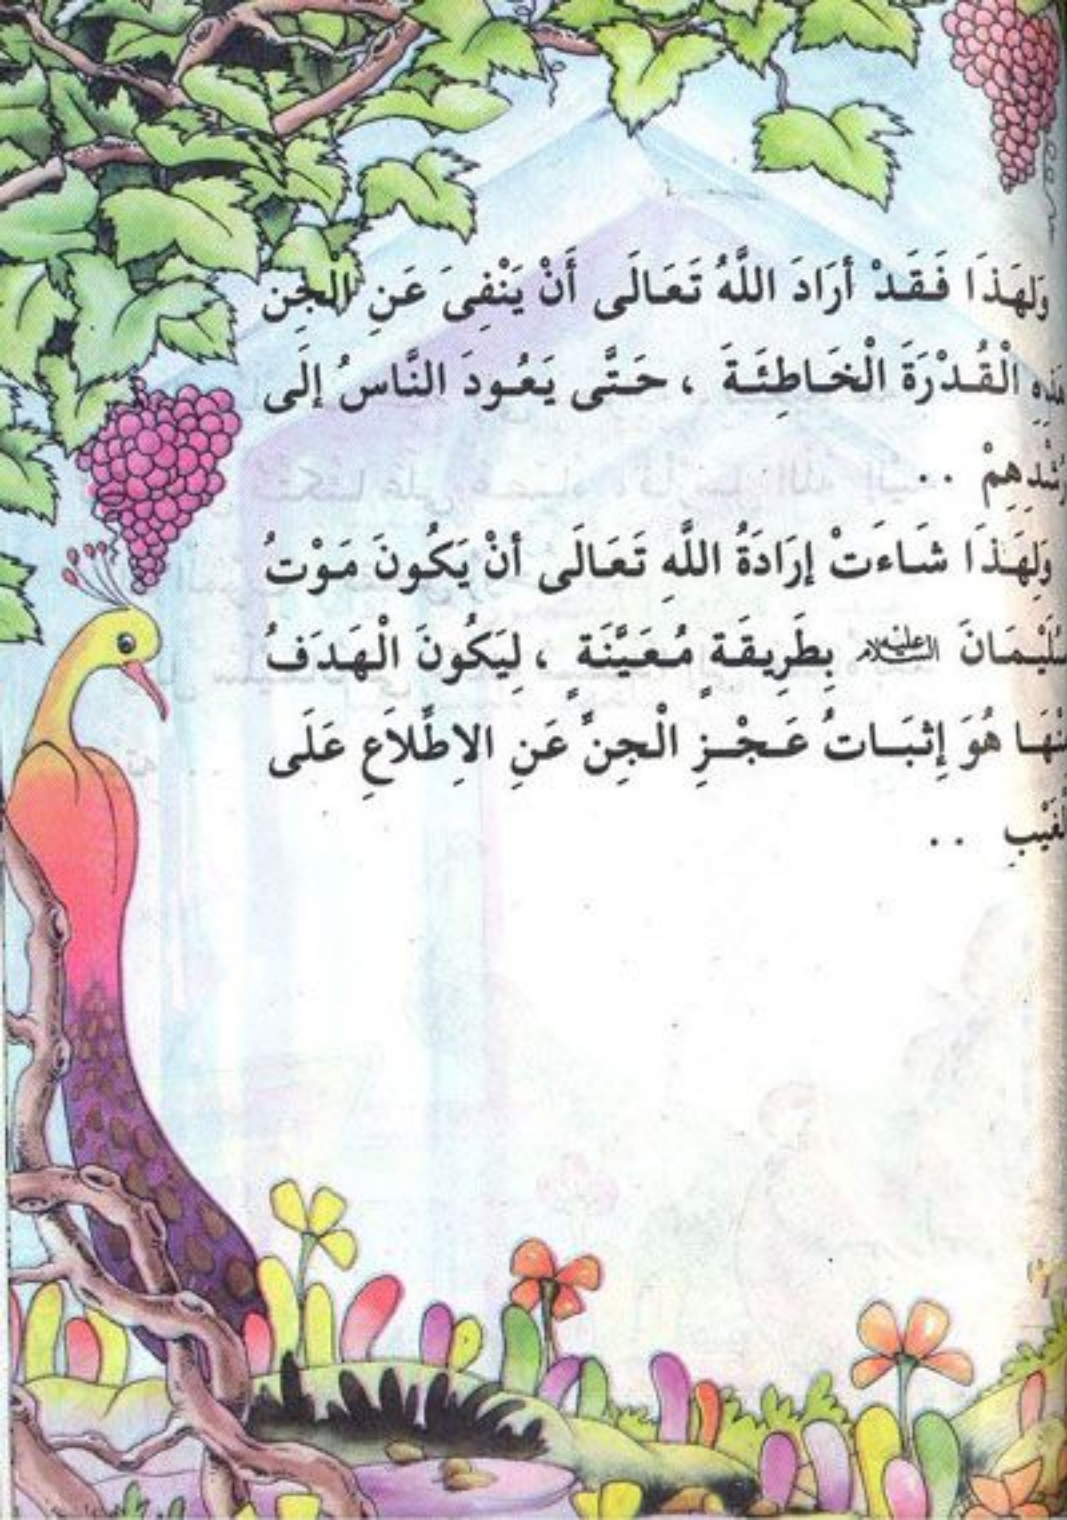 وَلِهَذَا فَقَدْ أرَادَ اللَّهُ تَعَالَى أَنْ يَنْفِىَ عَنِ الْجِن
هَذِهِ الْقُدْرَةَ الْخَاطِئَةَ ، حَتَّى يَعُودَ النَّاسُ إلَى
رُشْدِهِمْ ..
وَلِهَذَا شَاءَتْ إرَادَةُ اللَّهِ تَعَالَى أنْ يَكُونَ مَوْتُ
سُلَيْمَانَ عليه السلام بِطَرِيقَة مُعَيَّنَة ، لِيَكُونَ الْهَدَفُ
مِنْهَا هُوَ إِثبَاتُ عَجْزِ الْجِنِّ عَنِ الاِطِّلاَعِ عَلَى
الْغَيْبِ ..